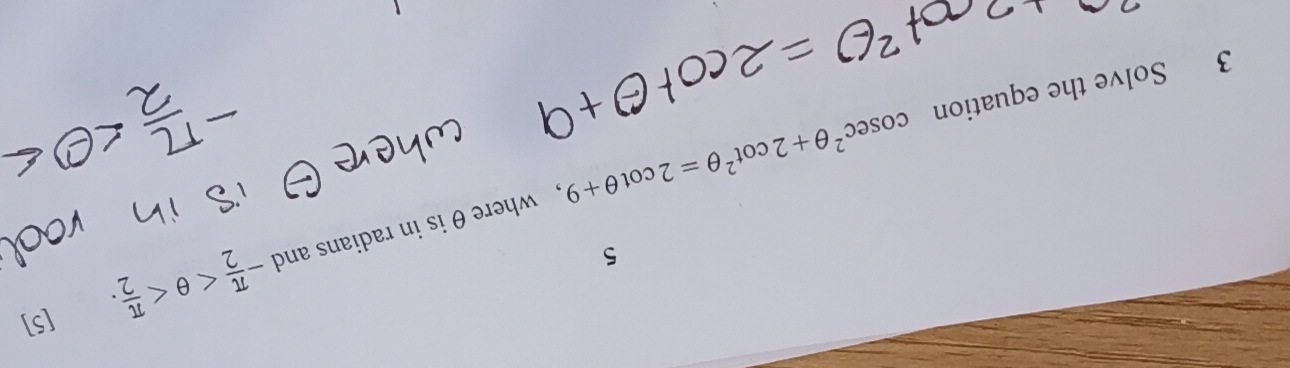 5
3 Solve the equation cosec²θ + 2cot²θ = 2cotθ + 9, where θ is in radians and −π/2 < θ < π/2. [5]
cot²θ = 2cotθ + 9 where θ is in
−π/2 < θ <